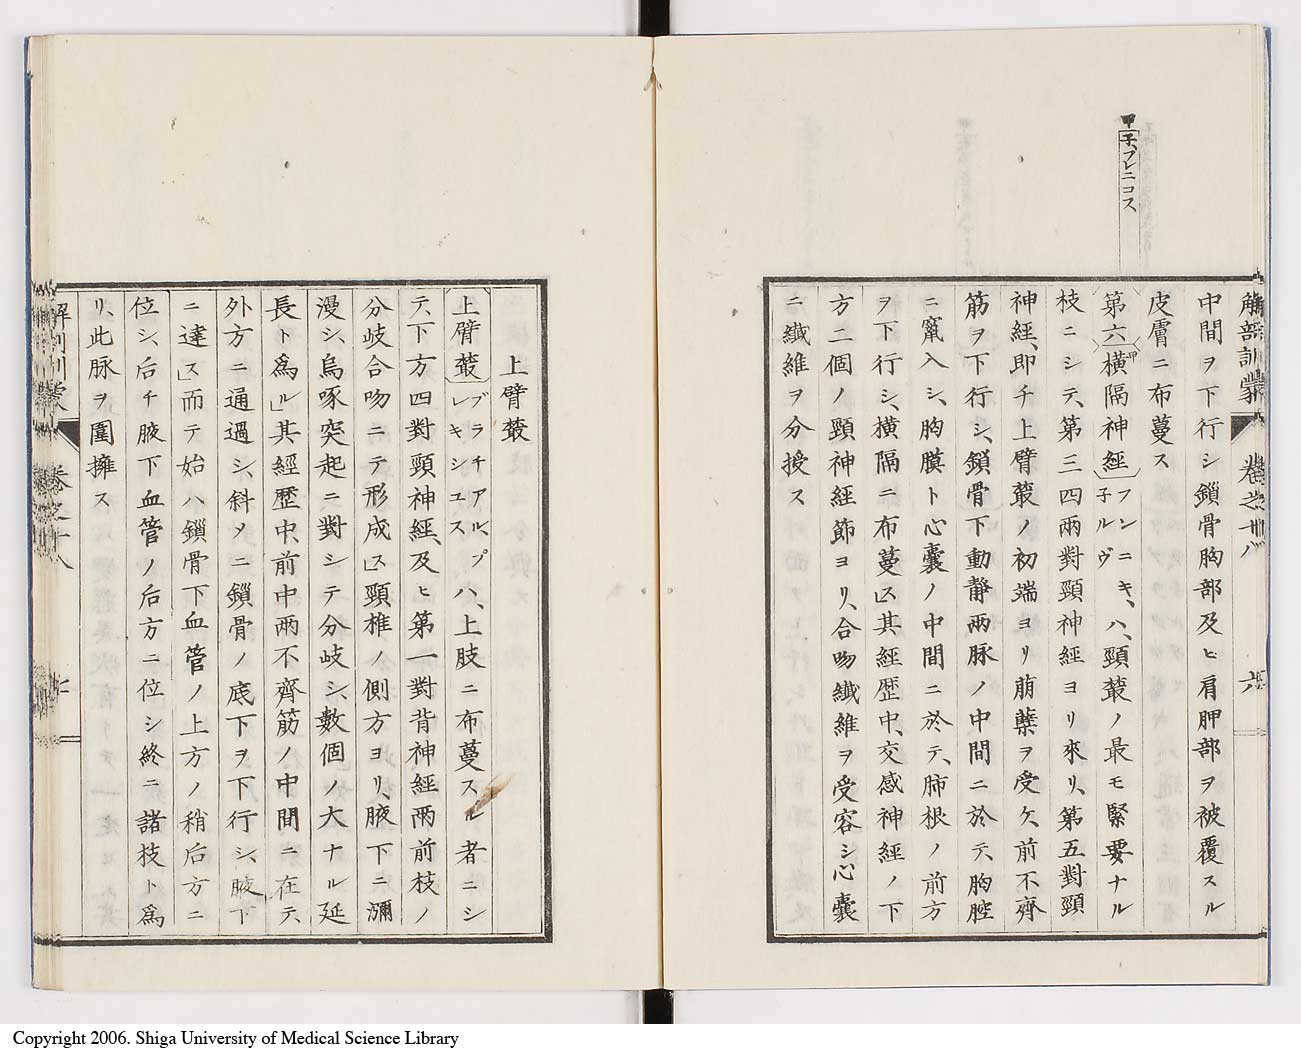 甲「子、フレニコス
中間ヲ下行シ鎖骨胸部及ヒ肩胛部ヲ被覆スル
皮膚ニ布蔓ス
第六甲横隔神經フンニキ、子ルヴハ、頸叢ノ最モ緊要ナル
枝ニシテ、第三四兩對頸神經ヨリ來リ、第五對頸
神經、即チ上臂叢ノ初端ヨリ萠蘗ヲ受ケ、前不齊
筋ヲ下行シ、鎖骨下動靜兩脉ノ中間ニ於テ、胸腔
ニ竄入シ、胸膜ト心囊ノ中間ニ於テ、肺根ノ前方
ヲ下行シ、横隔ニ布蔓」ス其經歴中、交感神經ノ下
方二個ノ頸神經節ヨリ、合吻纎維ヲ受容シ心囊
ニ纎維ヲ分授ス
解剖訓蒙 卷之十八 六
上臂叢
上臂叢ブラチアル、プレキシユスハ、上肢ニ布蔓スル者ニシ
テ、下方四對頸神經、及ヒ第一對背神經兩前枝ノ
分岐合吻ニテ形成」ス頸椎ノ側方ヨリ、腋下ニ瀰
漫シ、烏啄突起ニ對シテ分岐シ、數個ノ大ナル延
長ト爲ル」其經歴中、前中兩不齊筋ノ中間ニ在テ、
外方ニ通過シ、斜メニ鎖骨ノ底下ヲ下行シ、腋下
ニ達」ス而テ始ハ鎖骨下血管ノ上方ノ稍后方ニ
位シ、后チ腋下血管ノ后方ニ位シ終ニ諸枝ト爲
リ、此脉ヲ圍擁ス
解剖訓蒙 卷之十八
Copyright 2006. Shiga University of Medical Science Library